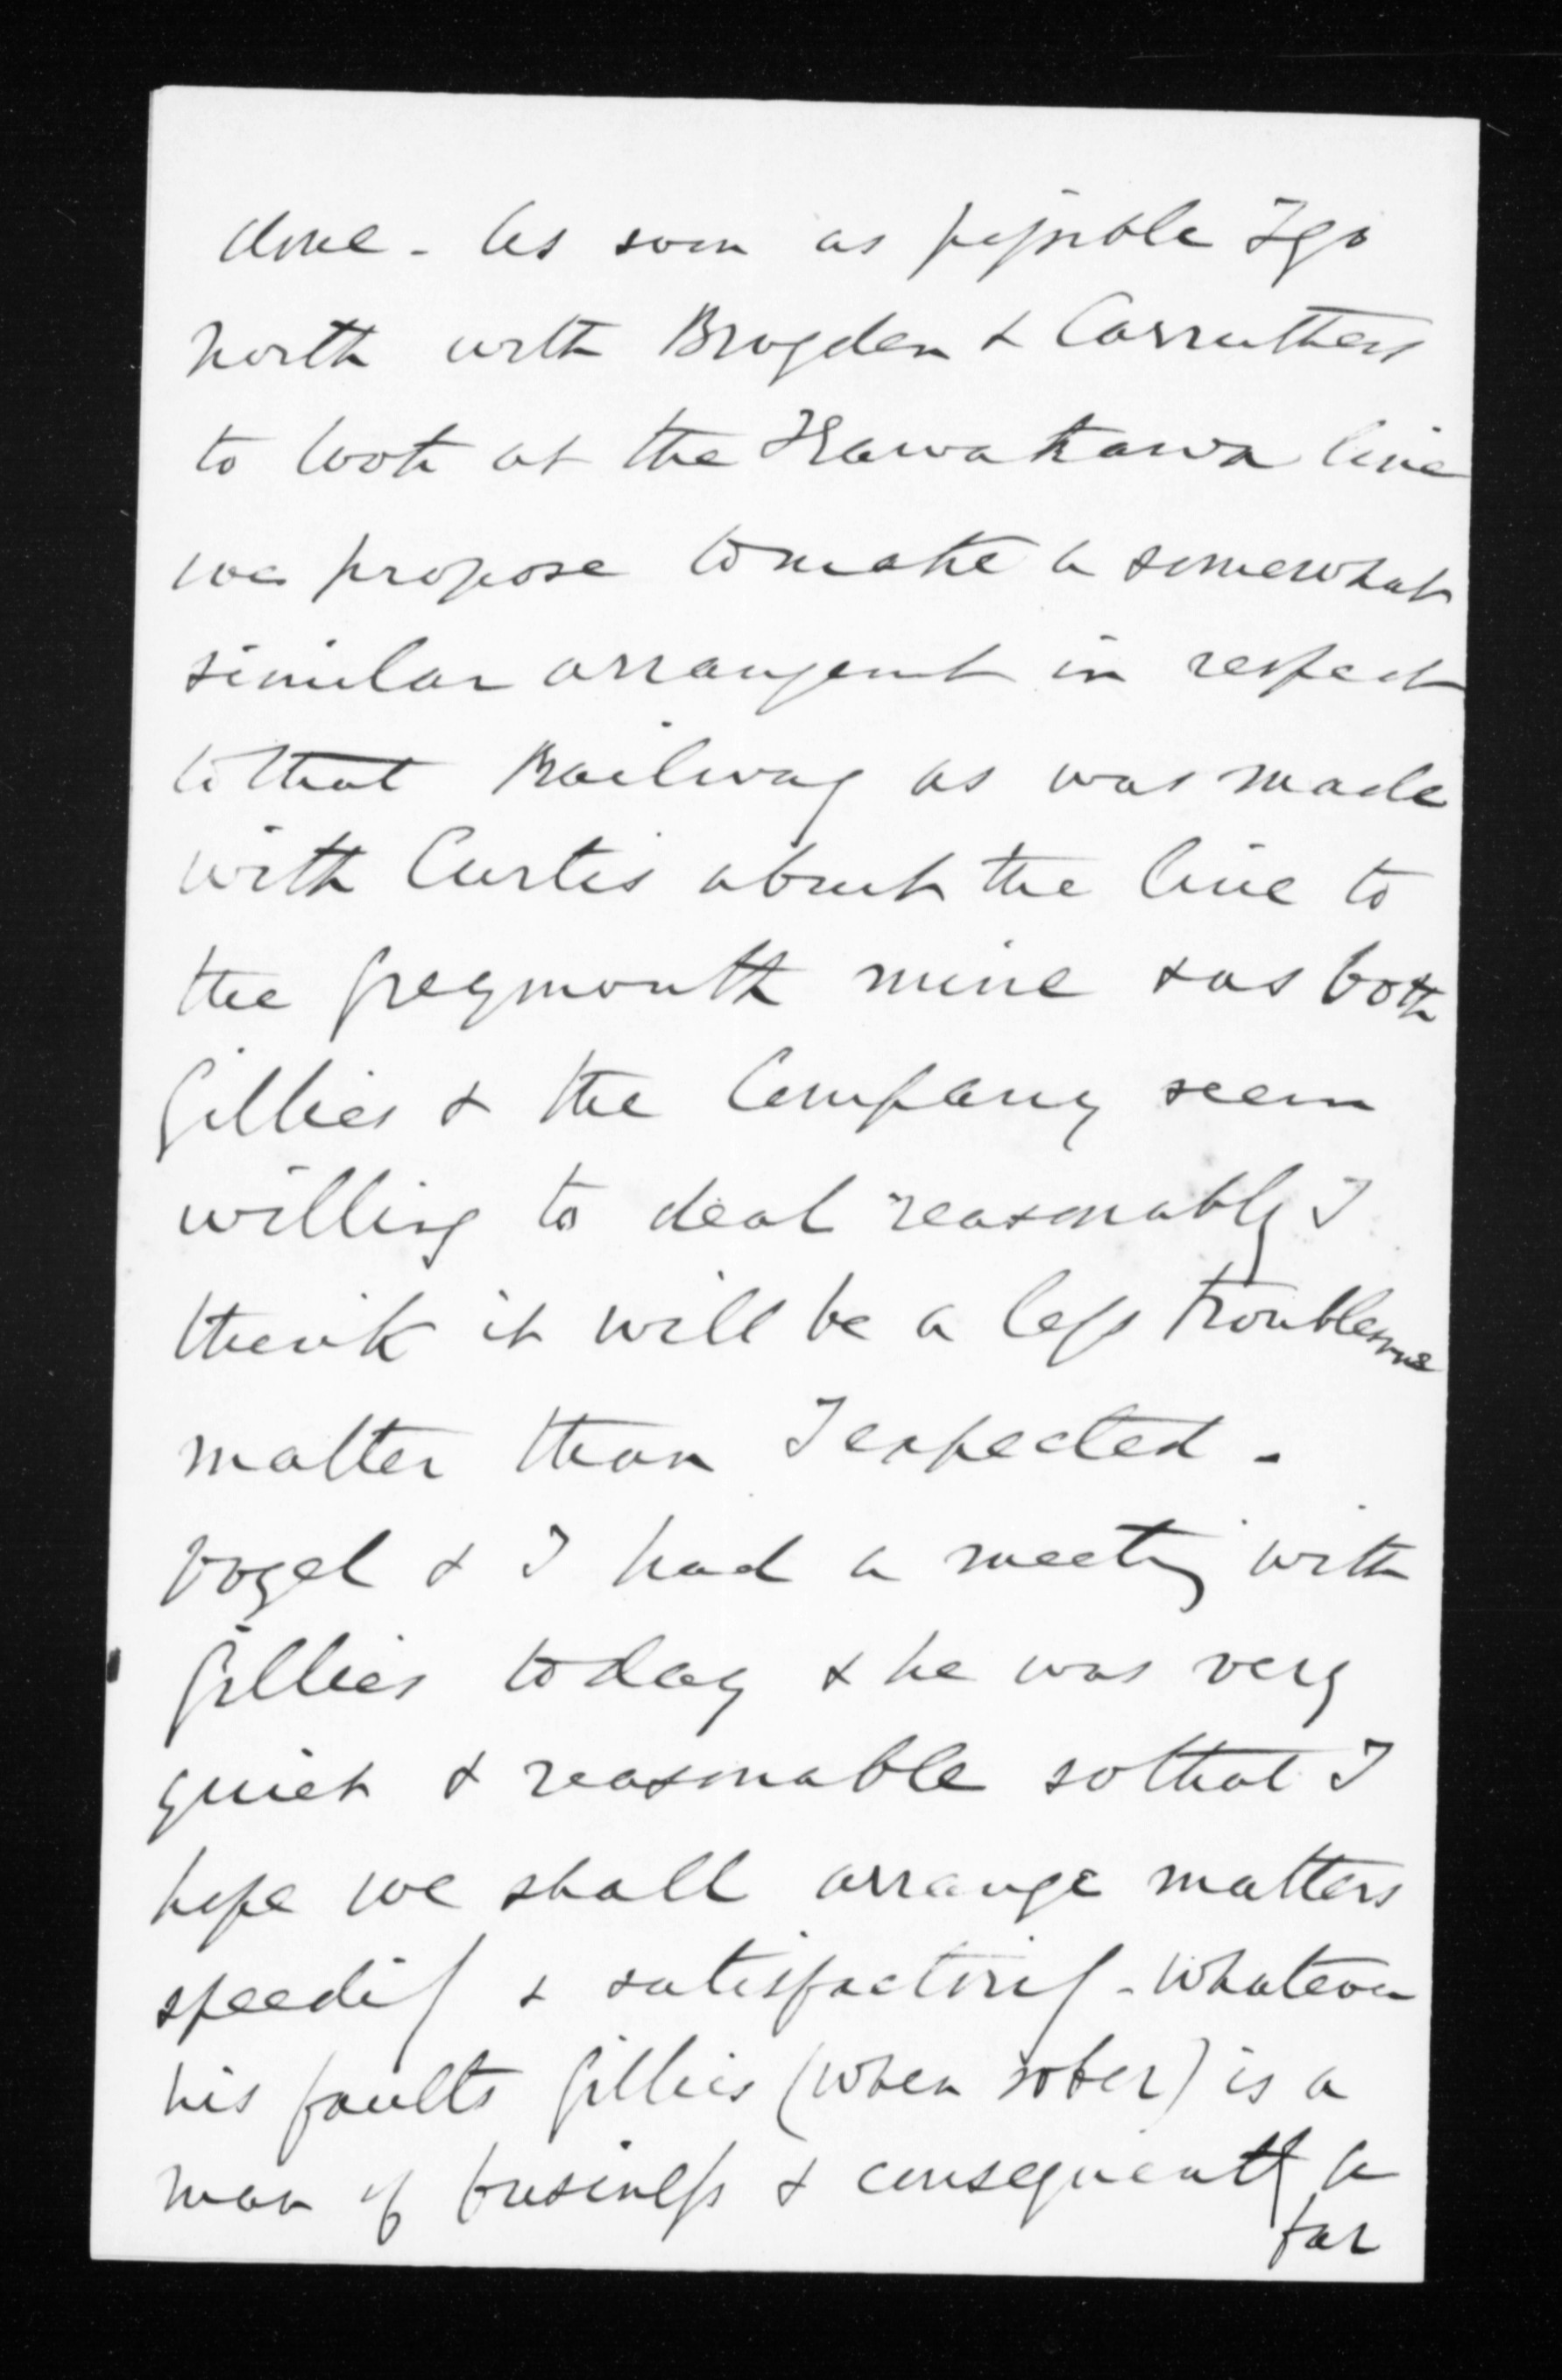 done - As soon as possible I go
north with Brogden & Carruthers
to look at the Kawakawa line
we propose to make a somewhat
similar arrangent in respect
to that Railway as was made
with Curtis about the line to
the Greymouth mine & as both
Gillies & the Company seem
willing to deal reasonably I
think it will be a less troublesome
matter than I expected -
Vogel & I had a meeting with
Gillies today & he was very
quiet & reasonable so that I
hope we shall arrange matters
speedily & satisfactorily - Whatever
his faults Gillies (when sober) is a
man of business & consequently a
far